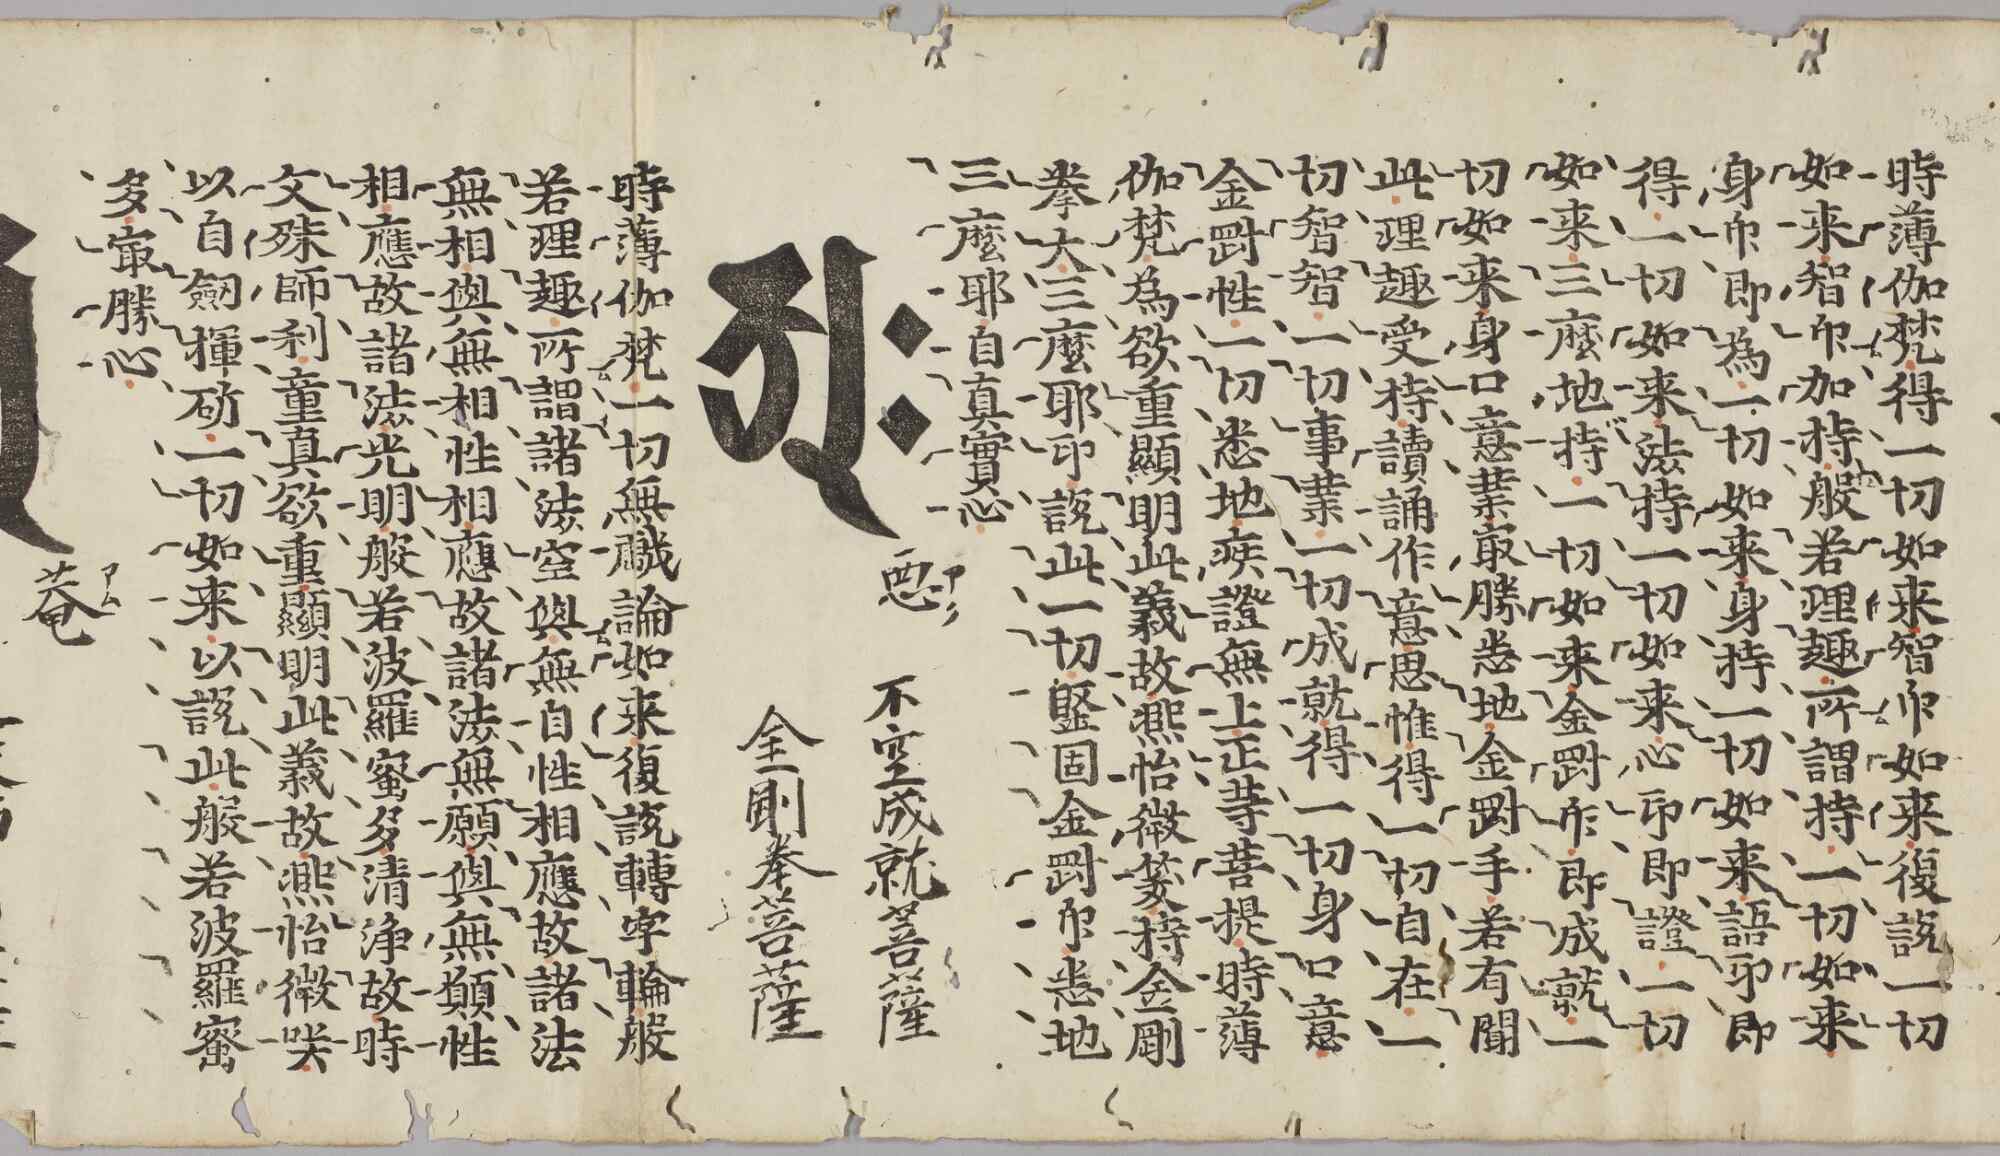 時薄伽梵得一切如来智印如来復説一切
如来智印加持般若理趣所謂持一切如来
身印即為一切如来身持一切如来語印即
得一切如来法持一切如来心印即證一切
如来三麼地持一切如来金剛印即成就一
切如来身口意業㝡勝悉地金剛手若有聞
此理趣受持讀誦作意思惟得一切自在一
切智智一切事業一切成就得一切身口意
金剛性一切悉地疾證無上正等菩提時薄
伽梵為欲重顯明此義故熈怡微笑持金剛
拳大三麼耶印説此一切堅固金剛印悉地
三麼耶自真實心
𑖀𑖾
惡 アク
不空成就菩薩
金剛拳菩薩
時薄伽梵一切無戯論如来復説轉字輪般
若理趣所謂諸法空與無自性相應故諸法
無相與無相性相應故諸法無願與無願性
相應故諸法光明般若波羅蜜多清浄故時
文殊師利童真欲重顯明此義故熈怡微咲
以自劒揮斫一切如来以説此般若波羅蜜
多㝡勝心
菴 アム